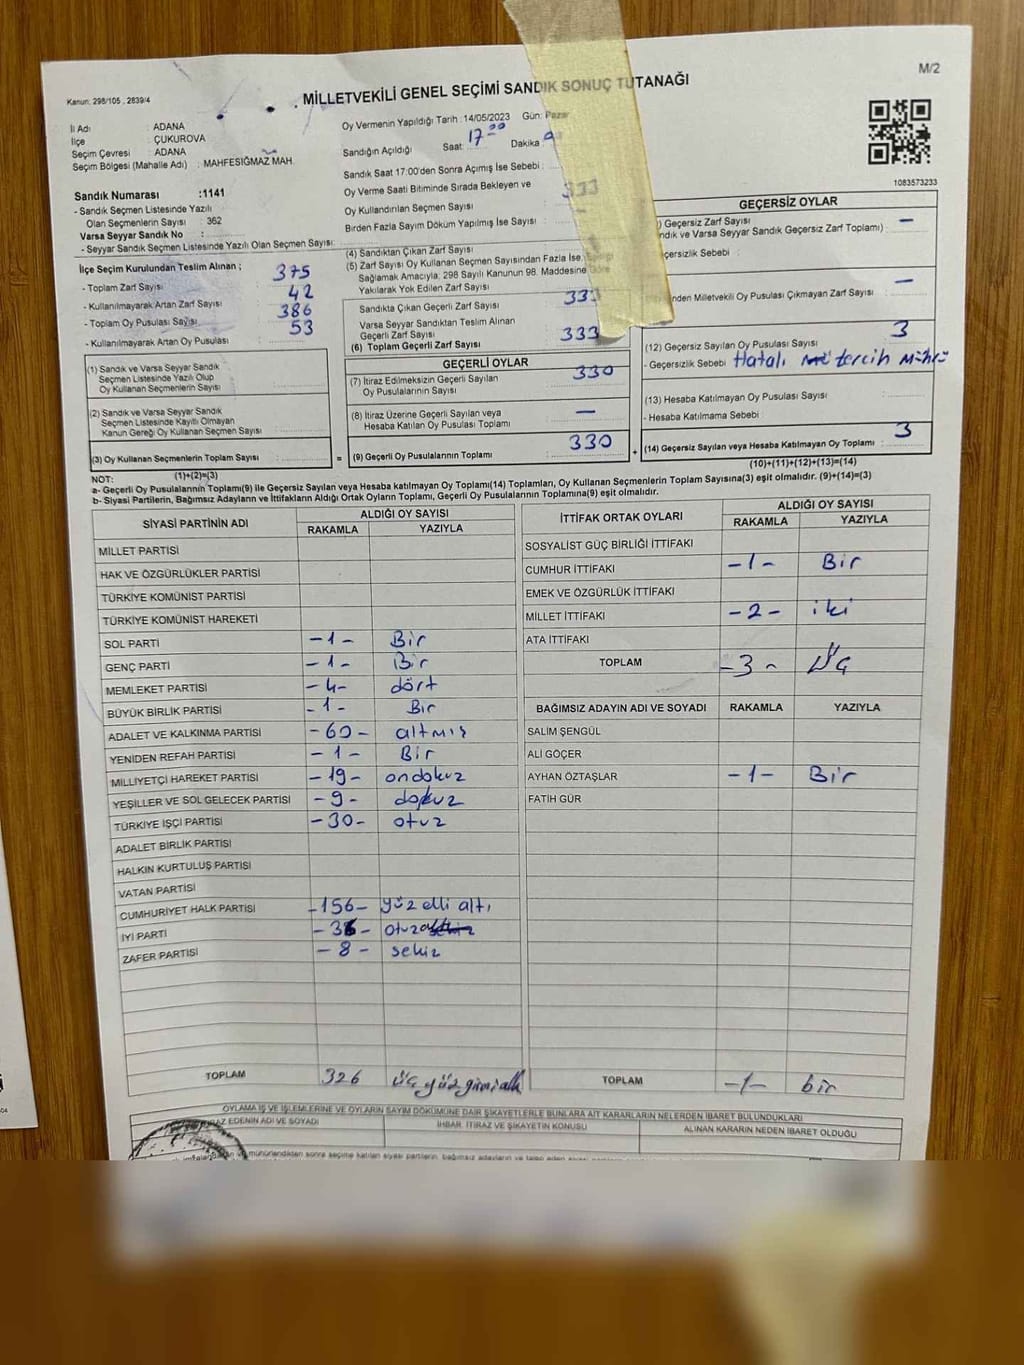 M/2
Kanun: 298/105 , 2839/4
MİLLETVEKİLİ GENEL SEÇİMİ SANDIK SONUÇ TUTANAĞI
İl Adı : ADANA
İlçe : ÇUKUROVA
Seçim Çevresi : ADANA
Seçim Bölgesi (Mahalle Adı) : MAHFESIĞMAZ MAH.
Sandık Numarası :1141
- Sandık Seçmen Listesinde Yazılı
Olan Seçmenlerin Sayısı : 362
Varsa Seyyar Sandık No :
- Seyyar Sandık Seçmen Listesinde Yazılı Olan Seçmen Sayısı:
Oy Vermenin Yapıldığı Tarih : 14/05/2023 Gün: Pazar
Sandığın Açıldığı Saat: 17 00 Dakika
Sandık Saat 17:00'den Sonra Açımış İse Sebebi :
Oy Verme Saati Bitiminde Sırada Bekleyen ve
Oy Kullandırılan Seçmen Sayısı
Birden Fazla Sayım Döküm Yapılmış İse Sayısı
1083573233
İlçe Seçim Kurulundan Teslim Alınan ;
- Toplam Zarf Sayısı : 375
- Kullanılmayarak Artan Zarf Sayısı : 42
- Toplam Oy Pusulası Sayısı : 386
- Kullanılmayarak Artan Oy Pusulası : 53
(1) Sandık ve Varsa Seyyar Sandık
Seçmen Listesinde Yazılı Olup
Oy Kullanan Seçmenlerin Sayısı
(2) Sandık ve Varsa Seyyar Sandık
Seçmen Listesinde Kayıtlı Olmayan
Kanun Gereği Oy Kullanan Seçmen Sayısı
(3) Oy Kullanan Seçmenlerin Toplam Sayısı
(1)+(2)=(3)
(4) Sandıktan Çıkan Zarf Sayısı
333
(5) Zarf Sayısı Oy Kullanan Seçmen Sayısından Fazla İse,
Sağlamak Amacıyla; 298 Sayılı Kanunun 98. Maddesine Göre
Yakılarak Yok Edilen Zarf Sayısı
Sandıkta Çıkan Geçerli Zarf Sayısı 333
Varsa Seyyar Sandıktan Teslim Alınan
Geçerli Zarf Sayısı
(6) Toplam Geçerli Zarf Sayısı 333
GEÇERLİ OYLAR
(7) İtiraz Edilmeksizin Geçerli Sayılan
Oy Pusulalarının Sayısı 330
(8) İtiraz Üzerine Geçerli Sayılan veya
Hesaba Katılan Oy Pusulası Toplamı —
= (9) Geçerli Oy Pusulalarının Toplamı 330
GEÇERSİZ OYLAR
Geçersiz Zarf Sayısı —
ve Varsa Seyyar Sandık Geçersiz Zarf Toplamı) :
Sebebi :
Milletvekili Oy Pusulası Çıkmayan Zarf Sayısı : —
(12) Geçersiz Sayılan Oy Pusulası Sayısı : 3
- Geçersizlik Sebebi : Hatalı tercih Mührü
(13) Hesaba Katılmayan Oy Pusulası Sayısı :
- Hesaba Katılmama Sebebi :
+ (14) Geçersiz Sayılan veya Hesaba Katılmayan Oy Toplamı : 3
(10)+(11)+(12)+(13)=(14)
NOT:
a- Geçerli Oy Pusulalarının Toplamı(9) ile Geçersiz Sayılan veya Hesaba katılmayan Oy Toplamı(14) Toplamları, Oy Kullanan Seçmenlerin Toplam Sayısına(3) eşit olmalıdır. (9)+(14)=(3)
b- Siyasi Partilerin, Bağımsız Adayların ve İttifakların Aldığı Ortak Oyların Toplamı, Geçerli Oy Pusulalarının Toplamına(9) eşit olmalıdır.
SİYASİ PARTİNİN ADI ALDIĞI OY SAYISI
RAKAMLA YAZIYLA
MİLLET PARTİSİ
HAK VE ÖZGÜRLÜKLER PARTİSİ
TÜRKİYE KOMÜNİST PARTİSİ
TÜRKİYE KOMÜNİST HAREKETİ
SOL PARTİ -1- Bir
GENÇ PARTİ -1- Bir
MEMLEKET PARTİSİ -4- dört
BÜYÜK BİRLİK PARTİSİ -1- Bir
ADALET VE KALKINMA PARTİSİ -60- altmış
YENİDEN REFAH PARTİSİ -1- Bir
MİLLİYETÇİ HAREKET PARTİSİ -19- ondokuz
YEŞİLLER VE SOL GELECEK PARTİSİ -9- dokuz
TÜRKİYE İŞÇİ PARTİSİ -30- otuz
ADALET BİRLİK PARTİSİ
HALKIN KURTULUŞ PARTİSİ
VATAN PARTİSİ
CUMHURİYET HALK PARTİSİ -156- yüz elli altı
İYİ PARTİ
ZAFER PARTİSİ -8- sekiz
TOPLAM 326 üç yüz yirmi altı
İTTİFAK ORTAK OYLARI ALDIĞI OY SAYISI
RAKAMLA YAZIYLA
SOSYALİST GÜÇ BİRLİĞİ İTTİFAKI
CUMHUR İTTİFAKI -1- Bir
EMEK VE ÖZGÜRLÜK İTTİFAKI
MİLLET İTTİFAKI -2- iki
ATA İTTİFAKI
TOPLAM -3- Üç
BAĞIMSIZ ADAYIN ADI VE SOYADI RAKAMLA YAZIYLA
SALİM ŞENGÜL
ALİ GÖÇER
AYHAN ÖZTAŞLAR -1- Bir
FATİH GÜR
TOPLAM -1- bir
OYLAMA İŞ VE İŞLEMLERİNE VE OYLARIN SAYIM DÖKÜMÜNE DAİR ŞİKAYETLERLE BUNLARA AİT KARARLARIN NELERDEN İBARET BULUNDUKLARI
EDENİN ADI VE SOYADI İHBAR, İTİRAZ VE ŞİKAYETİN KONUSU ALINAN KARARIN NEDEN İBARET OLDUĞU